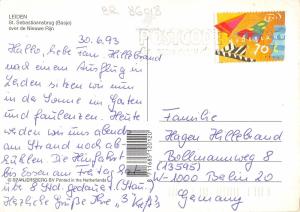 LEIDEN
St. Sebastiaansbrug (Basjo)
over de Nieuwe Rijn
BR 86518
30.6.93
Hallo, liebe Fam. Hillebrand
nach einem Ausflug in
Leiden sitzen wir nun
in der Sonne im Garten
und faulenzen. Heute
werden wir uns abends
am Strand noch ab-
kühlen. Die Hinfahrt
bis Essen am Freitag
über 8 Std. gedauert (Stau).
Herzliche Grüße Ihre
70 c
Familie
Hagen Hillebrand
Bollmannsweg 8
(13595)
W-1000 Berlin 20
Germany
© SPANJERSBERG BV Printed in the Netherlands